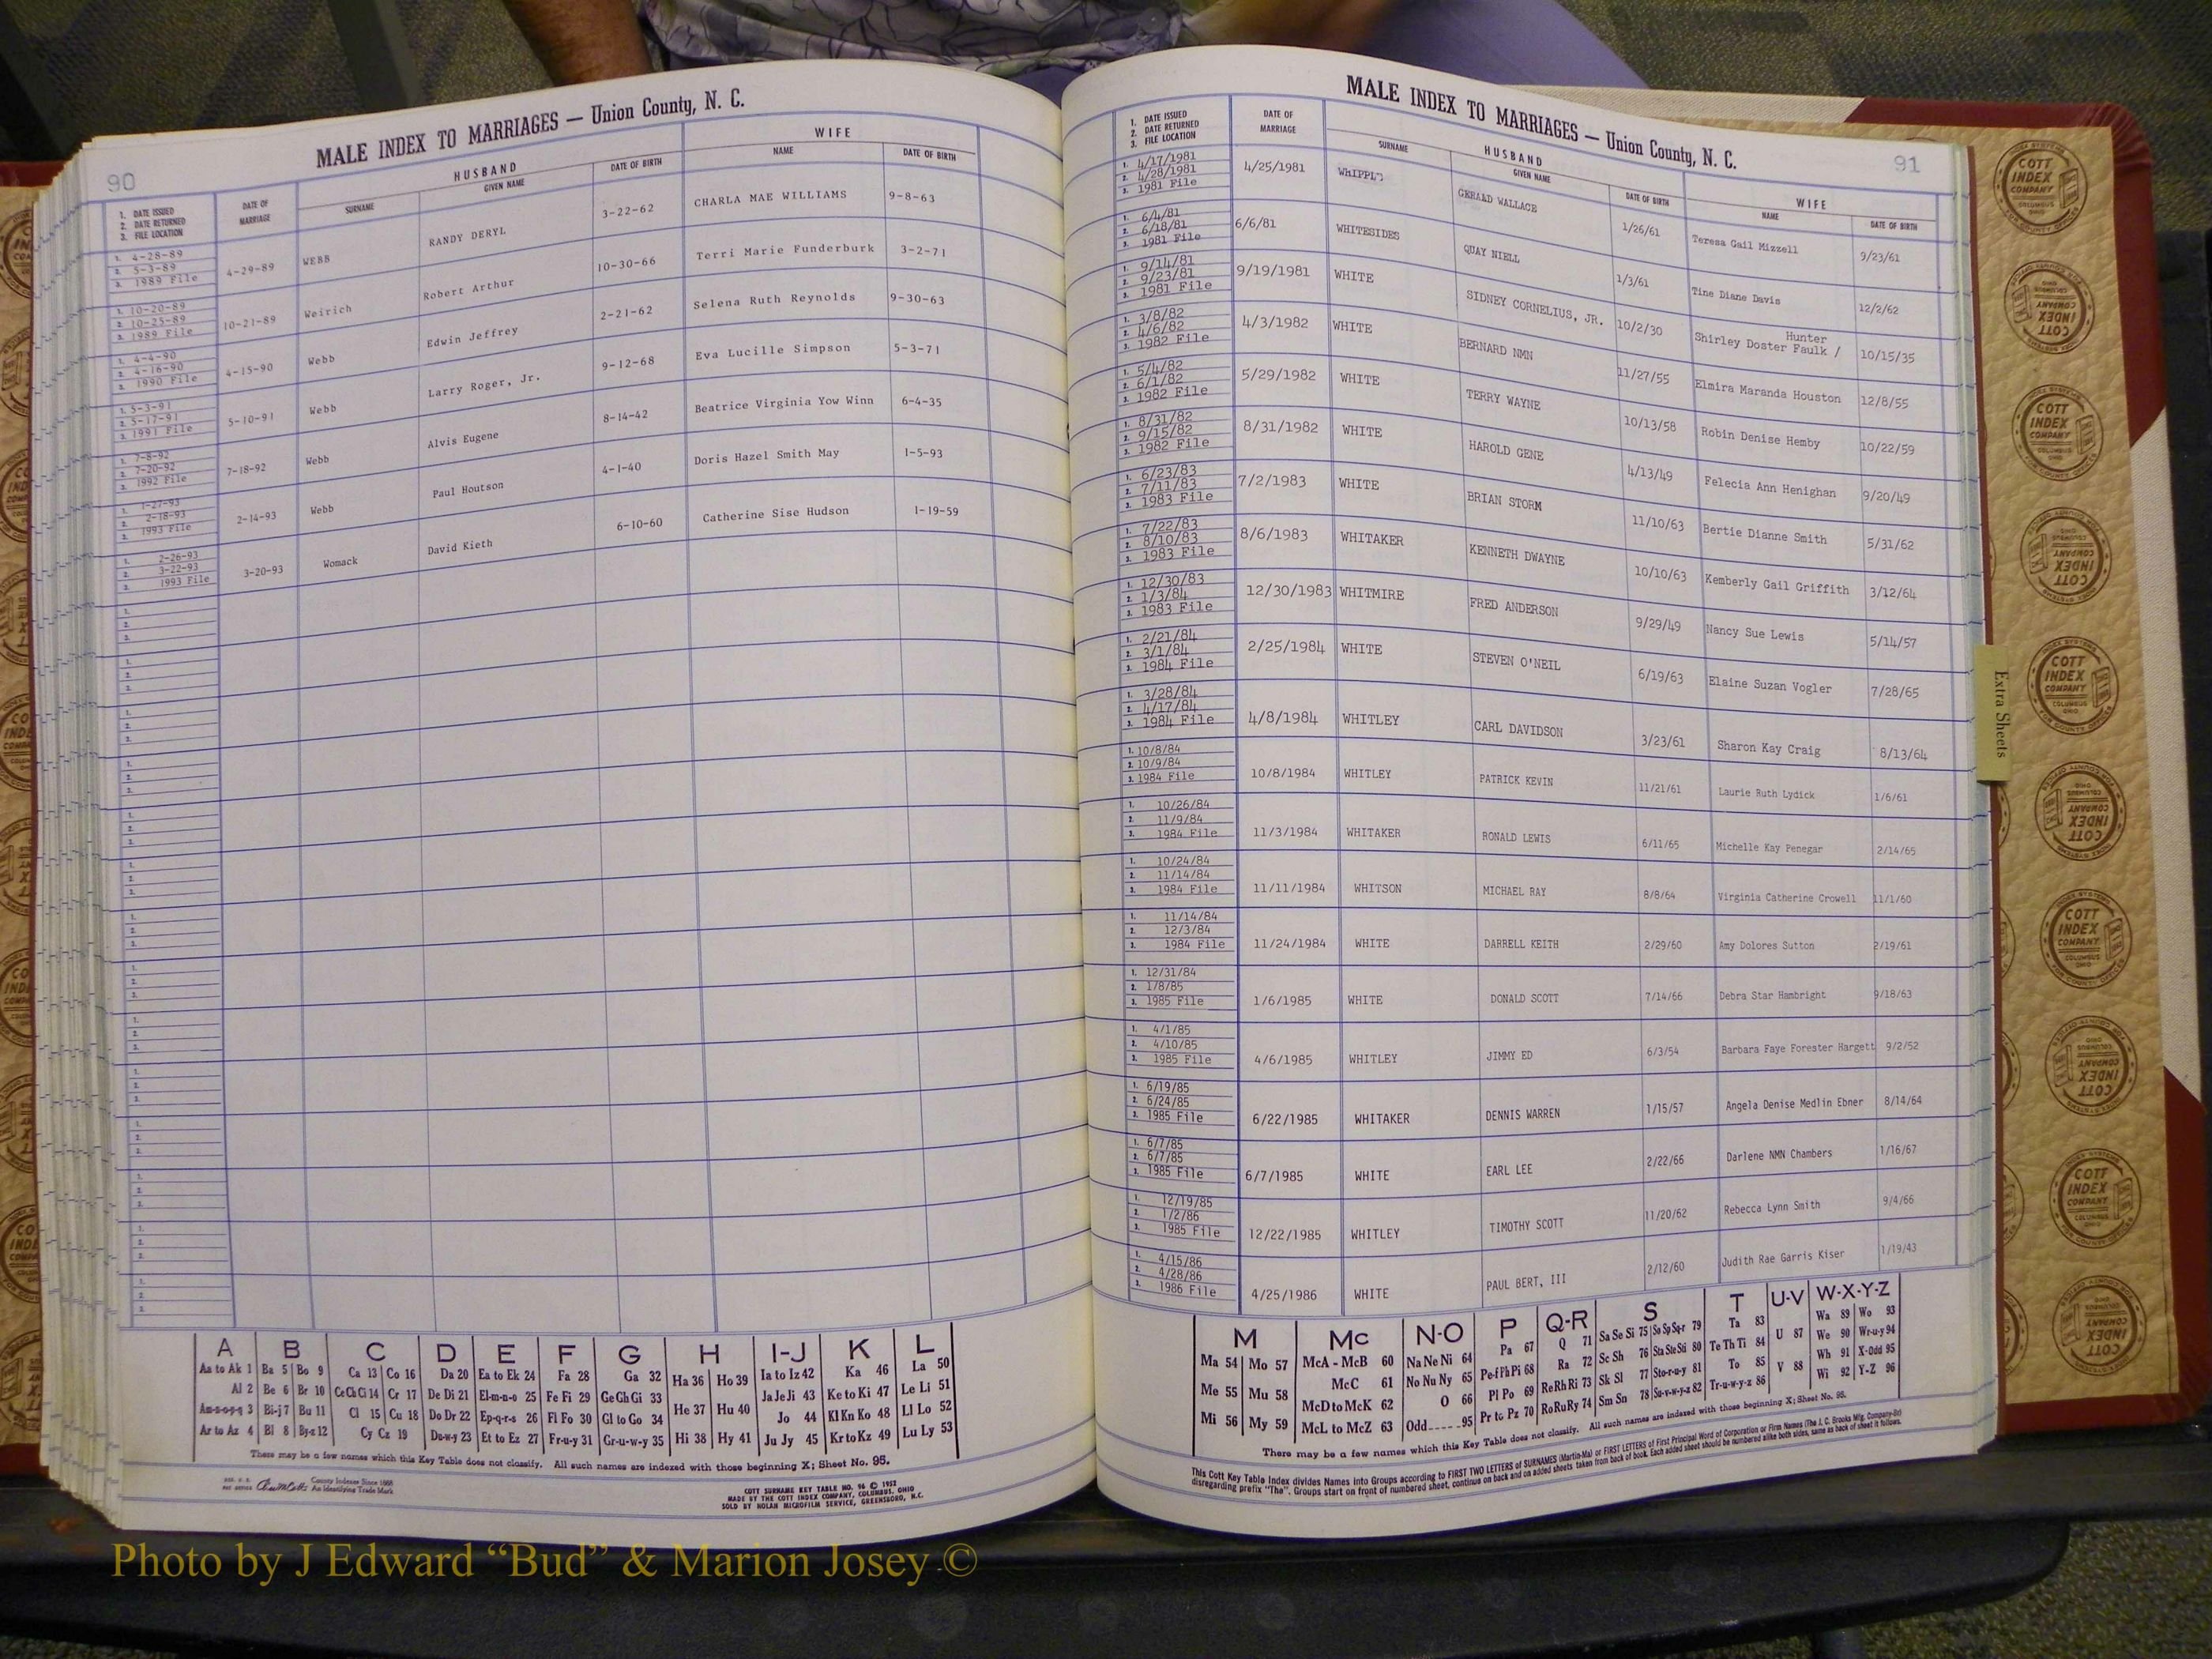 90
MALE INDEX TO MARRIAGES — Union County, N. C.
1. DATE ISSUED
2. DATE RETURNED
3. FILE LOCATION
DATE OF MARRIAGE
HUSBAND
SURNAME GIVEN NAME DATE OF BIRTH
WIFE
NAME DATE OF BIRTH
1. 4-28-89
2. 5-3-89
3. 1989 File
4-29-89 WEBB RANDY DERYL 3-22-62 CHARLA MAE WILLIAMS 9-8-63
1. 10-20-89
2. 10-25-89
3. 1989 File
10-21-89 Weirich Robert Arthur 10-30-66 Terri Marie Funderburk 3-2-71
1. 4-4-90
2. 4-16-90
3. 1990 File
4-15-90 Webb Edwin Jeffrey 2-21-62 Selena Ruth Reynolds 9-30-63
1. 5-3-91
2. 5-17-91
3. 1991 File
5-10-91 Webb Larry Roger, Jr. 9-12-68 Eva Lucille Simpson 5-3-71
1. 7-8-92
2. 7-20-92
3. 1992 File
7-18-92 Webb Alvis Eugene 8-14-42 Beatrice Virginia Yow Winn 6-4-35
1. 1-27-93
2. 2-18-93
3. 1993 File
2-14-93 Webb Paul Houtson 4-1-40 Doris Hazel Smith May 1-5-93
1. 2-26-93
2. 3-22-93
3. 1993 File
3-20-93 Womack David Kieth 6-10-60 Catherine Sise Hudson 1-19-59
A B C D E F G H I-J K L
Aa to Ak 1 Ba 5 Bo 9 Ca 13 Co 16 Da 20 Ea to Ek 24 Fa 28 Ga 32 Ha 36 Ho 39 Ia to Iz 42 Ka 46 La 50
Al 2 Be 6 Br 10 Ce Ch Ci 14 Cr 17 De Di 21 El-m-n-o 25 Fe Fi 29 Ge Gh Gi 33 He 37 Hu 40 Ja Je Ji 43 Ke to Ki 47 Le Li 51
Am-n-o-p-q 3 Bi-j 7 Bu 11 Cl 15 Cu 18 Do Dr 22 Ep-q-r-s 26 Fl Fo 30 Gl to Go 34 Hi 38 Hy 41 Jo 44 Kl Kn Ko 48 Ll Lo 52
Ar to Az 4 Bl 8 By-z 12 Cy Cz 19 Du-w-y 23 Et to Ez 27 Fr-u-y 31 Gr-u-w-y 35 Ju Jy 45 Kr to Kz 49 Lu Ly 53
There may be a few names which this Key Table does not classify. All such names are indexed with those beginning X; Sheet No. 95.
County Indexes Since 1888
An Identifying Trade Mark
COTT SURNAME KEY TABLE NO. 96 © 1952
MADE BY THE COTT INDEX COMPANY, COLUMBUS, OHIO
SOLD BY NOLAN MICROFILM SERVICE, GREENSBORO, N.C.
MALE INDEX TO MARRIAGES — Union County, N. C.
91
1. DATE ISSUED
2. DATE RETURNED
3. FILE LOCATION
DATE OF MARRIAGE
HUSBAND
SURNAME GIVEN NAME DATE OF BIRTH
WIFE
NAME DATE OF BIRTH
1. 4/17/1981
2. 4/28/1981
3. 1981 File
4/25/1981 GERALD WALLACE 1/26/61 Teresa Gail Mizzell 9/23/61
1. 6/4/81
2. 6/18/81
3. 1981 File
6/6/81 WHITESIDES QUAY NIELL 1/3/61 Tine Diane Davis 12/2/62
1. 9/14/81
2. 9/23/81
3. 1981 File
9/19/1981 WHITE SIDNEY CORNELIUS, JR. 10/2/30 Shirley Doster Faulk / Hunter 10/15/35
1. 3/8/82
2. 4/6/82
3. 1982 File
4/3/1982 WHITE BERNARD NMN 11/27/55 Elmira Maranda Houston 12/8/55
1. 5/4/82
2. 6/1/82
3. 1982 File
5/29/1982 WHITE TERRY WAYNE 10/13/58 Robin Denise Hemby 10/22/59
1. 8/31/82
2. 9/15/82
3. 1982 File
8/31/1982 WHITE HAROLD GENE 4/13/49 Felecia Ann Henighan 9/20/49
1. 6/23/83
2. 7/11/83
3. 1983 File
7/2/1983 WHITE BRIAN STORM 11/10/63 Bertie Dianne Smith 5/31/62
1. 7/22/83
2. 8/10/83
3. 1983 File
8/6/1983 WHITAKER KENNETH DWAYNE 10/10/63 Kemberly Gail Griffith 3/12/64
1. 12/30/83
2. 1/3/84
3. 1983 File
12/30/1983 WHITMIRE FRED ANDERSON 9/29/49 Nancy Sue Lewis 5/14/57
1. 2/21/84
2. 3/1/84
3. 1984 File
2/25/1984 WHITE STEVEN O'NEIL 6/19/63 Elaine Suzan Vogler 7/28/65
1. 3/28/84
2. 4/17/84
3. 1984 File
4/8/1984 WHITLEY CARL DAVIDSON 3/23/61 Sharon Kay Craig 8/13/64
1. 10/8/84
2. 10/9/84
3. 1984 File
10/8/1984 WHITLEY PATRICK KEVIN 11/21/61 Laurie Ruth Lydick 1/6/61
1. 10/26/84
2. 11/9/84
3. 1984 File
11/3/1984 WHITAKER RONALD LEWIS 6/11/65 Michelle Kay Penegar 2/14/65
1. 10/24/84
2. 11/14/84
3. 1984 File
11/11/1984 WHITSON MICHAEL RAY 8/8/64 Virginia Catherine Crowell 11/1/60
1. 11/14/84
2. 12/3/84
3. 1984 File
11/24/1984 WHITE DARRELL KEITH 2/29/60 Amy Dolores Sutton 2/19/61
1. 12/31/84
2. 1/8/85
3. 1985 File
1/6/1985 WHITE DONALD SCOTT 7/14/66 Debra Star Hambright 9/18/63
1. 4/1/85
2. 4/10/85
3. 1985 File
4/6/1985 WHITLEY JIMMY ED 6/3/54 Barbara Faye Forester Hargett 9/2/52
1. 6/19/85
2. 6/24/85
3. 1985 File
6/22/1985 WHITAKER DENNIS WARREN 1/15/57 Angela Denise Medlin Ebner 8/14/64
1. 6/7/85
2. 6/7/85
3. 1985 File
6/7/1985 WHITE EARL LEE 2/22/66 Darlene NMN Chambers 1/16/67
1. 12/19/85
2. 1/2/86
3. 1985 File
12/22/1985 WHITLEY TIMOTHY SCOTT 11/20/62 Rebecca Lynn Smith 9/4/66
1. 4/15/86
2. 4/28/86
3. 1986 File
4/25/1986 WHITE PAUL BERT, III 2/12/60 Judith Rae Garris Kiser 1/19/43
M Mc N-O P Q-R S T U-V W-X-Y-Z
Ma 54 Mo 57 McA - McB 60 Na Ne Ni 64 Pa 67 Q 71 Sa Se Si 75 So Sp Sq-r 79 Ta 83 U 87 Wa 89 Wo 93
Me 55 Mu 58 McC 61 No Nu Ny 65 Pe-f Ph Pi 68 Ra 72 Sc Sh 76 Sta Ste Sti 80 Te Th Ti 84 V 88 We 90 Wr-u-y 94
McD to McK 62 O 66 Pl Po 69 Re Rh Ri 73 Sk Sl 77 Sto-r-u-y 81 To 85 Wh 91 X-Odd 95
Mi 56 My 59 McL to McZ 63 Odd 95 Pr to Pz 70 Ro Ru Ry 74 Sm Sn 78 Su-v-w-y-z 82 Tr-u-w-y-z 86 Wi 92 Y-Z 96
There may be a few names which this Key Table does not classify. All such names are indexed with those beginning X; Sheet No. 95.
This Cott Key Table Index divides Names into Groups according to FIRST TWO LETTERS of SURNAMES (Martin-Ma) or FIRST LETTERS of First Principal Word of Corporation or Firm Names (The J. C. Brooks Mfg. Company-Br)
disregarding prefix "The". Groups start on front of numbered sheet, continue on back and on added sheets taken from back of book. Each added sheet should be numbered alike both sides, same as back of sheet it follows.
Extra Sheets
COTT INDEX COMPANY COLUMBUS OHIO
FOR COUNTY OFFICES
Photo by J Edward “Bud” & Marion Josey ©